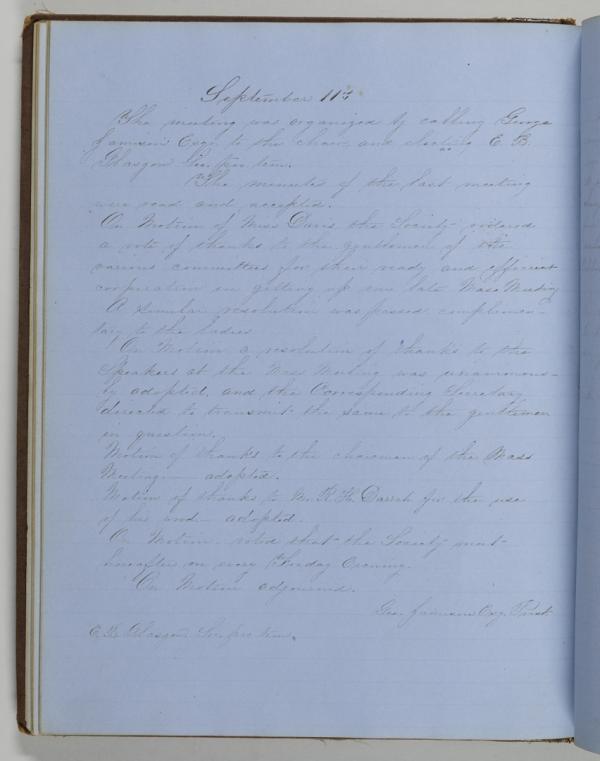 September 11th
The meeting was organized by calling George
Jamison Esqr. to the chair and electing E. B.
Glasgow Sec. pro tem.
The minutes of the last meeting
were read and accepted.
On Motion of Miss Davis the Society ordered
a vote of thanks to the gentlemen of the
various committees for their ready and efficient
cooperation in getting up our late Mass Meeting
A similar resolution was passed complimen-
tary to the ladies
On Motion a resolution of thanks to the
Speakers at the Mass Meeting was unanimous-
ly adopted, and the Corresponding Secretary
directed to transmit the same to the gentlemen
in question.
Motion of thanks to the chairman of the Mass
Meeting — adopted.
Motion of thanks to Mr. R. H. Darrah for the use
of his — adopted.
On Motion voted that the Society meet
hereafter on every Evening.
On Motion adjourned.
Geo. Jamison Esq. Prest.
E. B. Glasgow Sec. pro tem.